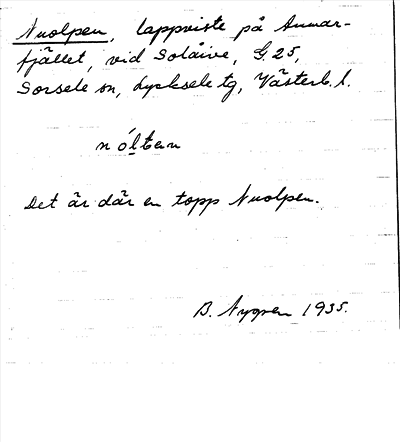 Nuolpen, lappviste på Ammar-
fjället, vid Solåive, G. 25,
Sorsele sn, Lycksele tg, Västerb. l.
nóltεn
Det är där en topp Nuolpen.
B. Nygren 1935.